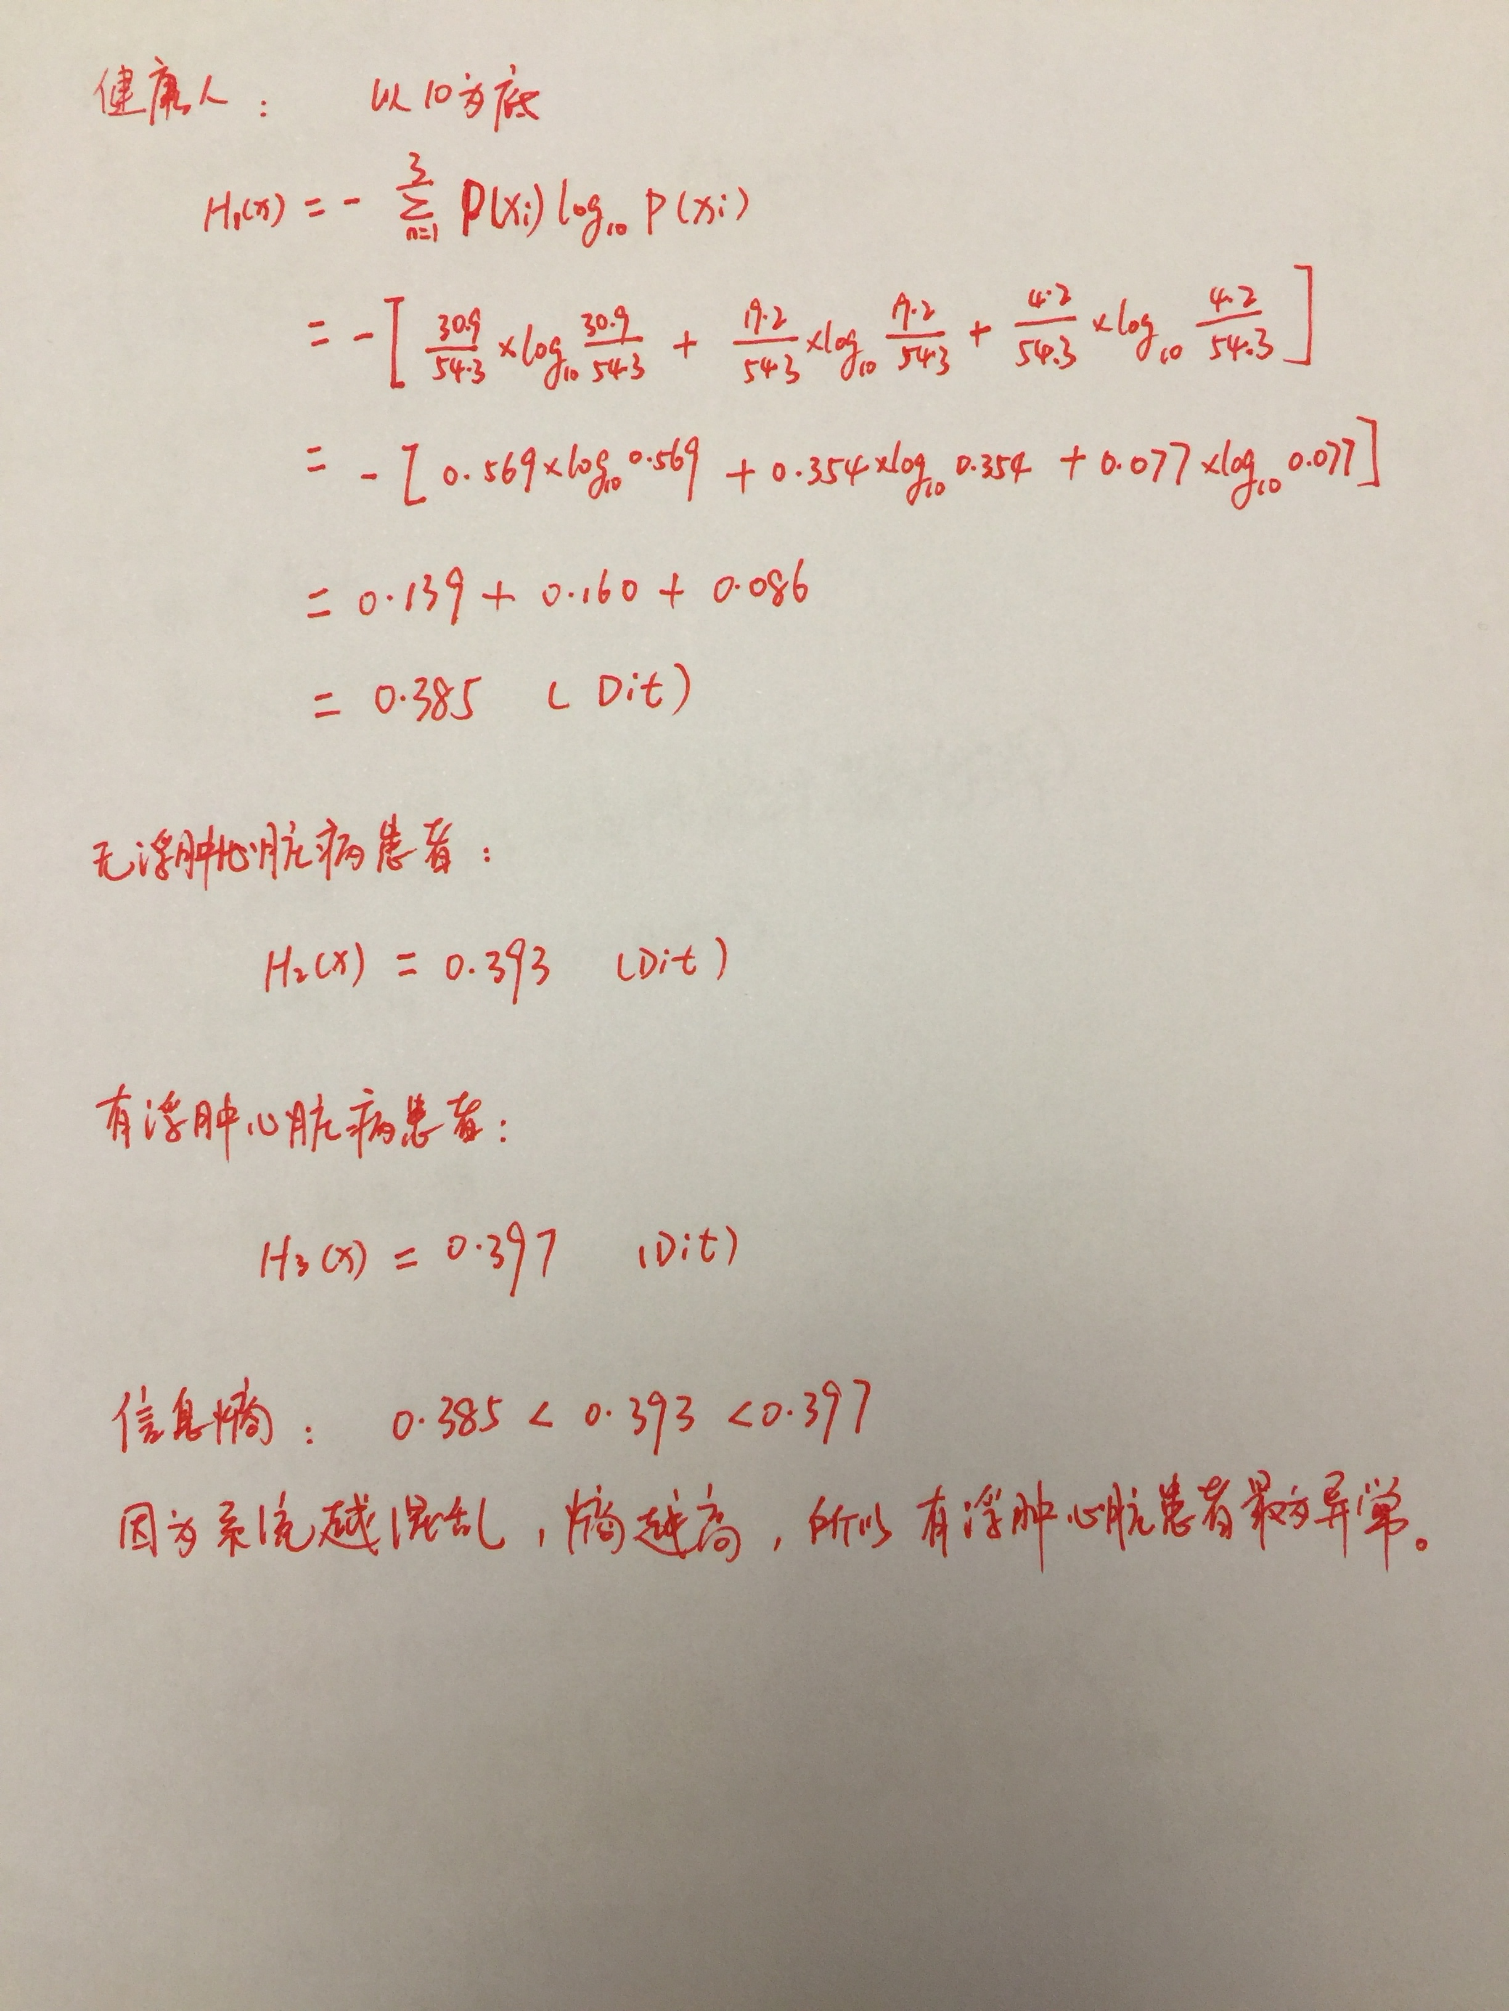 健康人： 以10为底
H₁(x) = - ∑_{n=1}^{3} P(xi) log₁₀ P(xi)
= - [ 30.9/54.3 × log₁₀ 30.9/54.3 + 19.2/54.3 × log₁₀ 19.2/54.3 + 4.2/54.3 × log₁₀ 4.2/54.3 ]
= - [ 0.569 × log₁₀ 0.569 + 0.354 × log₁₀ 0.354 + 0.077 × log₁₀ 0.077 ]
= 0.139 + 0.160 + 0.086
= 0.385 (Dit)
无浮肿心脏病患者：
H₂(x) = 0.393 (Dit)
有浮肿心脏病患者：
H₃(x) = 0.397 (Dit)
信息熵： 0.385 < 0.393 < 0.397
因为系统越混乱，熵越高，所以有浮肿心脏患者最为异常。